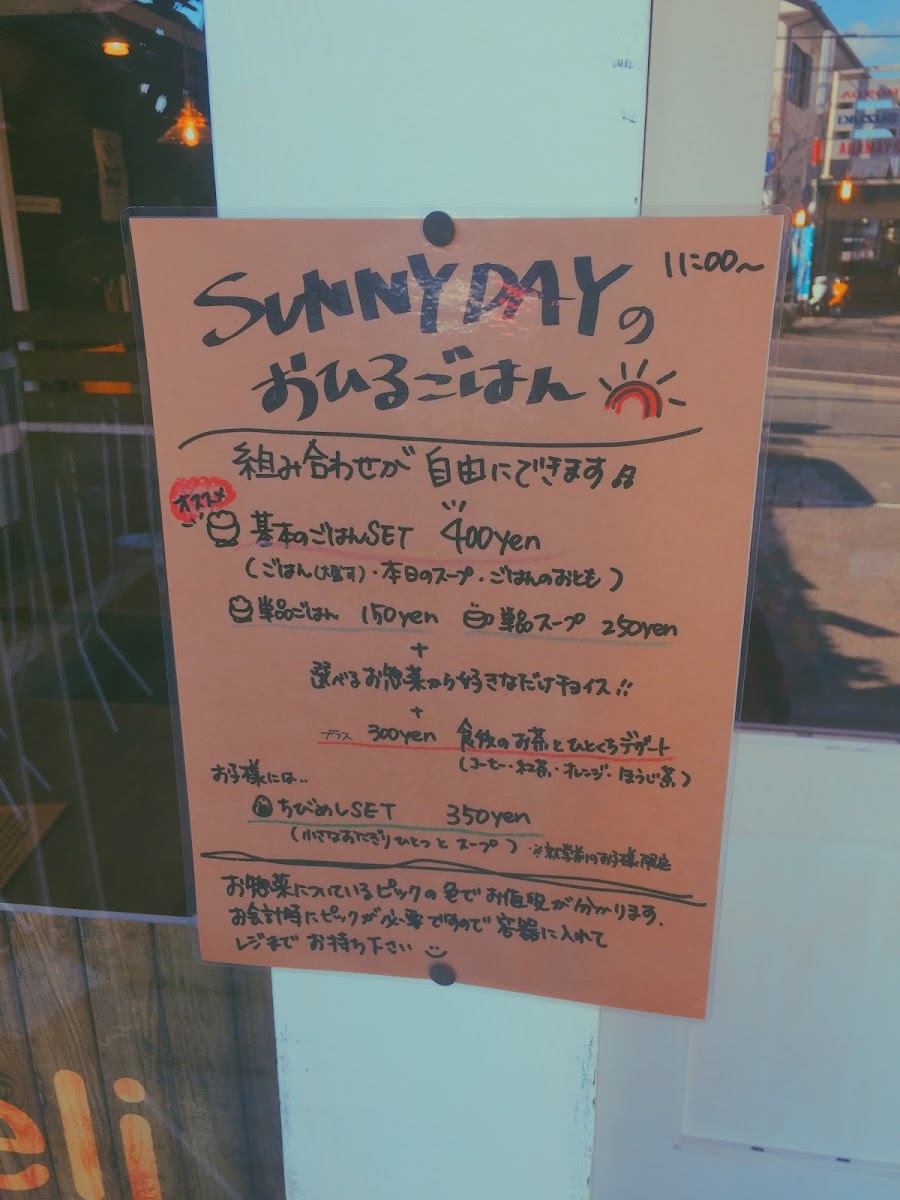 SUNNY DAYの
11:00〜
おひるごはん
組み合わせが 自由にできます♫
オススメ
基本のごはんSET 400yen
(ごはん(大盛可)・本日のスープ・ごはんのおとも)
単品ごはん 150yen 単品スープ 250yen
+
選べるお惣菜から好きなだけチョイス!!
+
プラス 300yen 食後のお茶とひとくちデザート
(コーヒー・紅茶・オレンジ・ほうじ茶)
お子様には..
ちびめしSET 350yen
(小さなおにぎりひとつと スープ) ※就学前のお子様限定
お惣菜についているピックの色でお値段が分かります.
お会計時にピックが必要ですので容器に入れて
レジまで お持ち下さい
eli